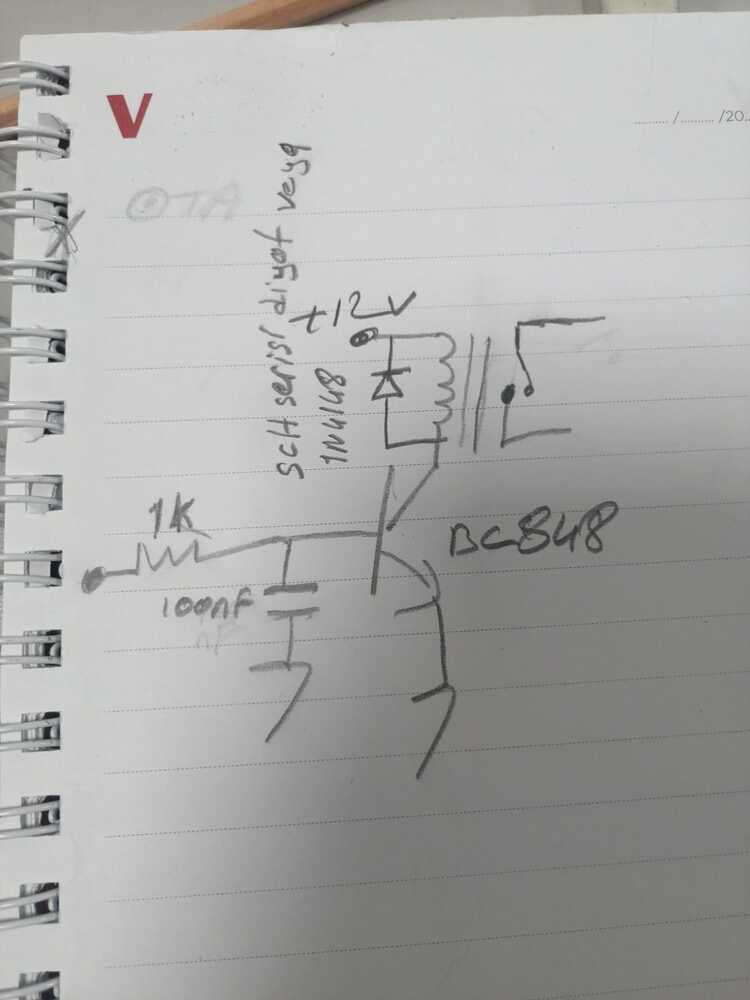 V
/ /20..
SCH serisi diyot veya
1N4148
+12V
1K
BC848
100nF